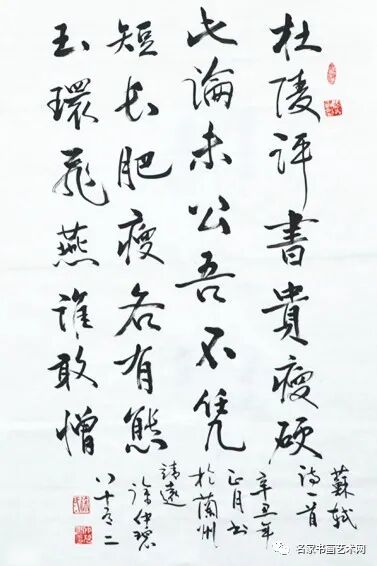 杜陵評書貴瘦硬
此論未公吾不凭
短长肥瘦各有態
玉環飛燕誰敢憎
蘇軾
詩一首
辛丑年
正月书
於蘭州
靖遠
仲
八十有二
名家书画艺术网